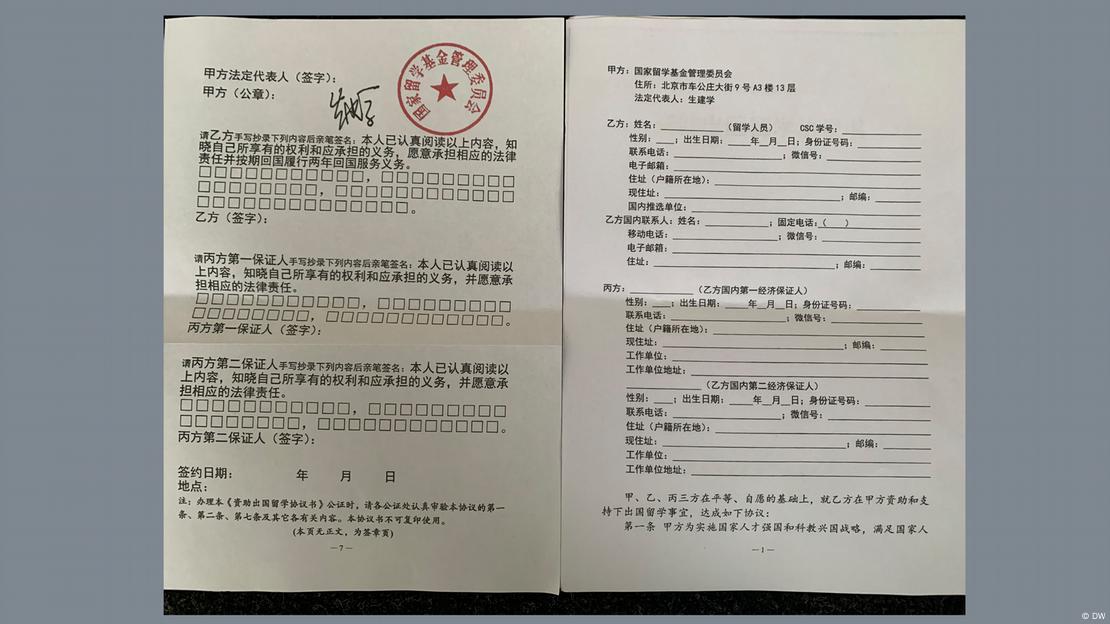 甲方法定代表人（签字）：
甲方（公章）：
国家留学基金管理委员会
请乙方手写抄录下列内容后亲笔签名：本人已认真阅读以上内容，知
晓自己所享有的权利和应承担的义务，愿意承担相应的法律
责任并按期回国履行两年回国服务义务。
□□□□□□□□□□□，□□□□□□□□□
□□□□□□□□，□□□□□□□□□□□□
□□□□□□□□□□□□□□。
乙方（签字）：
请丙方第一保证人手写抄录下列内容后亲笔签名：本人已认真阅读以
上内容，知晓自己所享有的权利和应承担的义务，并愿意承
担相应的法律责任。
□□□□□□□□□□□，□□□□□□□□□
□□□□□□□□，□□□□□□□□□□□□。
丙方第一保证人（签字）：
请丙方第二保证人手写抄录下列内容后亲笔签名：本人已认真阅读以
上内容，知晓自己所享有的权利和应承担的义务，并愿意承
担相应的法律责任。
□□□□□□□□□□□，□□□□□□□□□
□□□□□□□□，□□□□□□□□□□□□。
丙方第二保证人（签字）：
签约日期： 年 月 日
地点：
注：办理本《资助出国留学协议书》公证时，请各公证处认真审验本协议的第一
条、第二条、第七条及其它各有关内容。本协议书不可复印使用。
(本页无正文，为签章页)
—7—
甲方：国家留学基金管理委员会
住所：北京市车公庄大街9号A3楼13层
法定代表人：生建学
乙方：姓名：____（留学人员） CSC学号：____
性别：____；出生日期：____年__月__日；身份证号码：____
联系电话：____；微信号：____
电子邮箱：____
住址（户籍所在地）：____
现住址：____；邮编：____
国内推选单位：____
乙方国内联系人：姓名：____；固定电话：（ ）____
移动电话：____；微信号：____
电子邮箱：____
住址：____；邮编：____
丙方：____（乙方国内第一经济保证人）
性别：____；出生日期：____年__月__日；身份证号码：____
联系电话：____；微信号：____
住址（户籍所在地）：____
现住址：____；邮编：____
工作单位：____
工作单位地址：____
____（乙方国内第二经济保证人）
性别：____；出生日期：____年__月__日；身份证号码：____
联系电话：____；微信号：____
住址（户籍所在地）：____
现住址：____；邮编：____
工作单位：____
工作单位地址：____
甲、乙、丙三方在平等、自愿的基础上，就乙方在甲方资助和支
持下出国留学事宜，达成如下协议：
第一条 甲方为实施国家人才强国和科教兴国战略，满足国家人
—1—
© DW